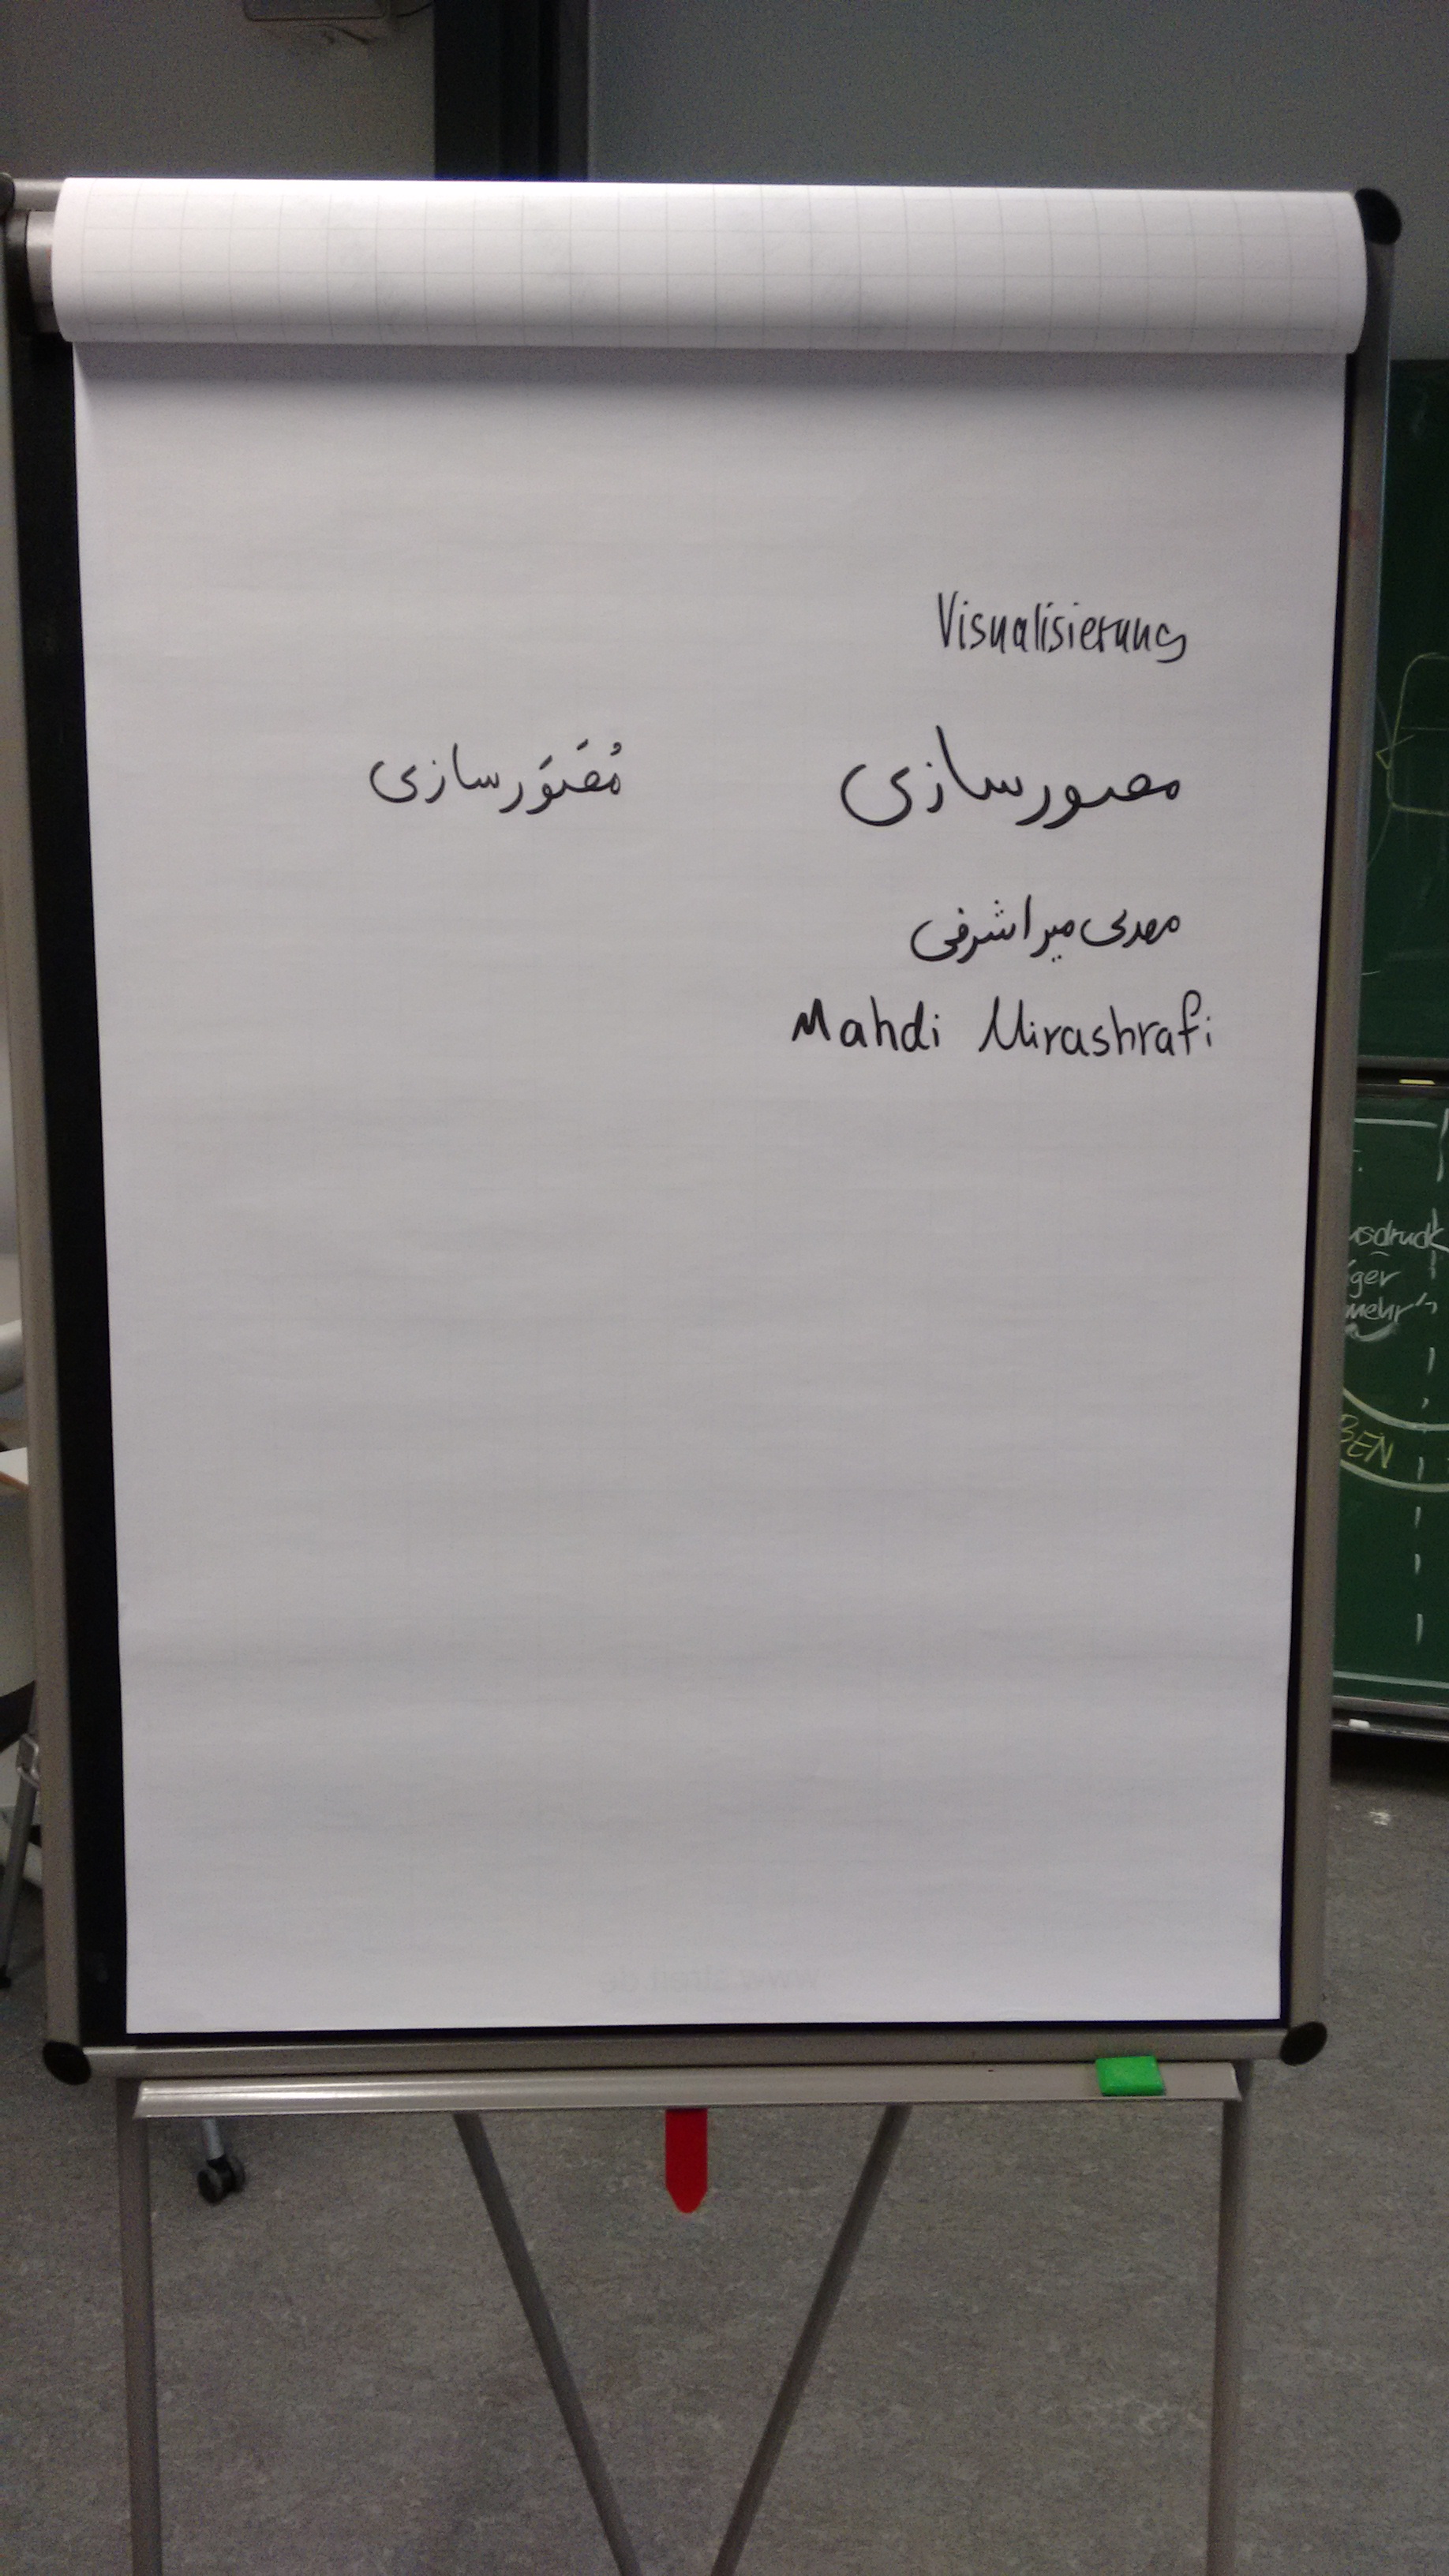 Visualisierung
مصورسازی
مُصَوَرسازی
مهدی میراشرفی
Mahdi Mirashrafi
mehr"
BEN